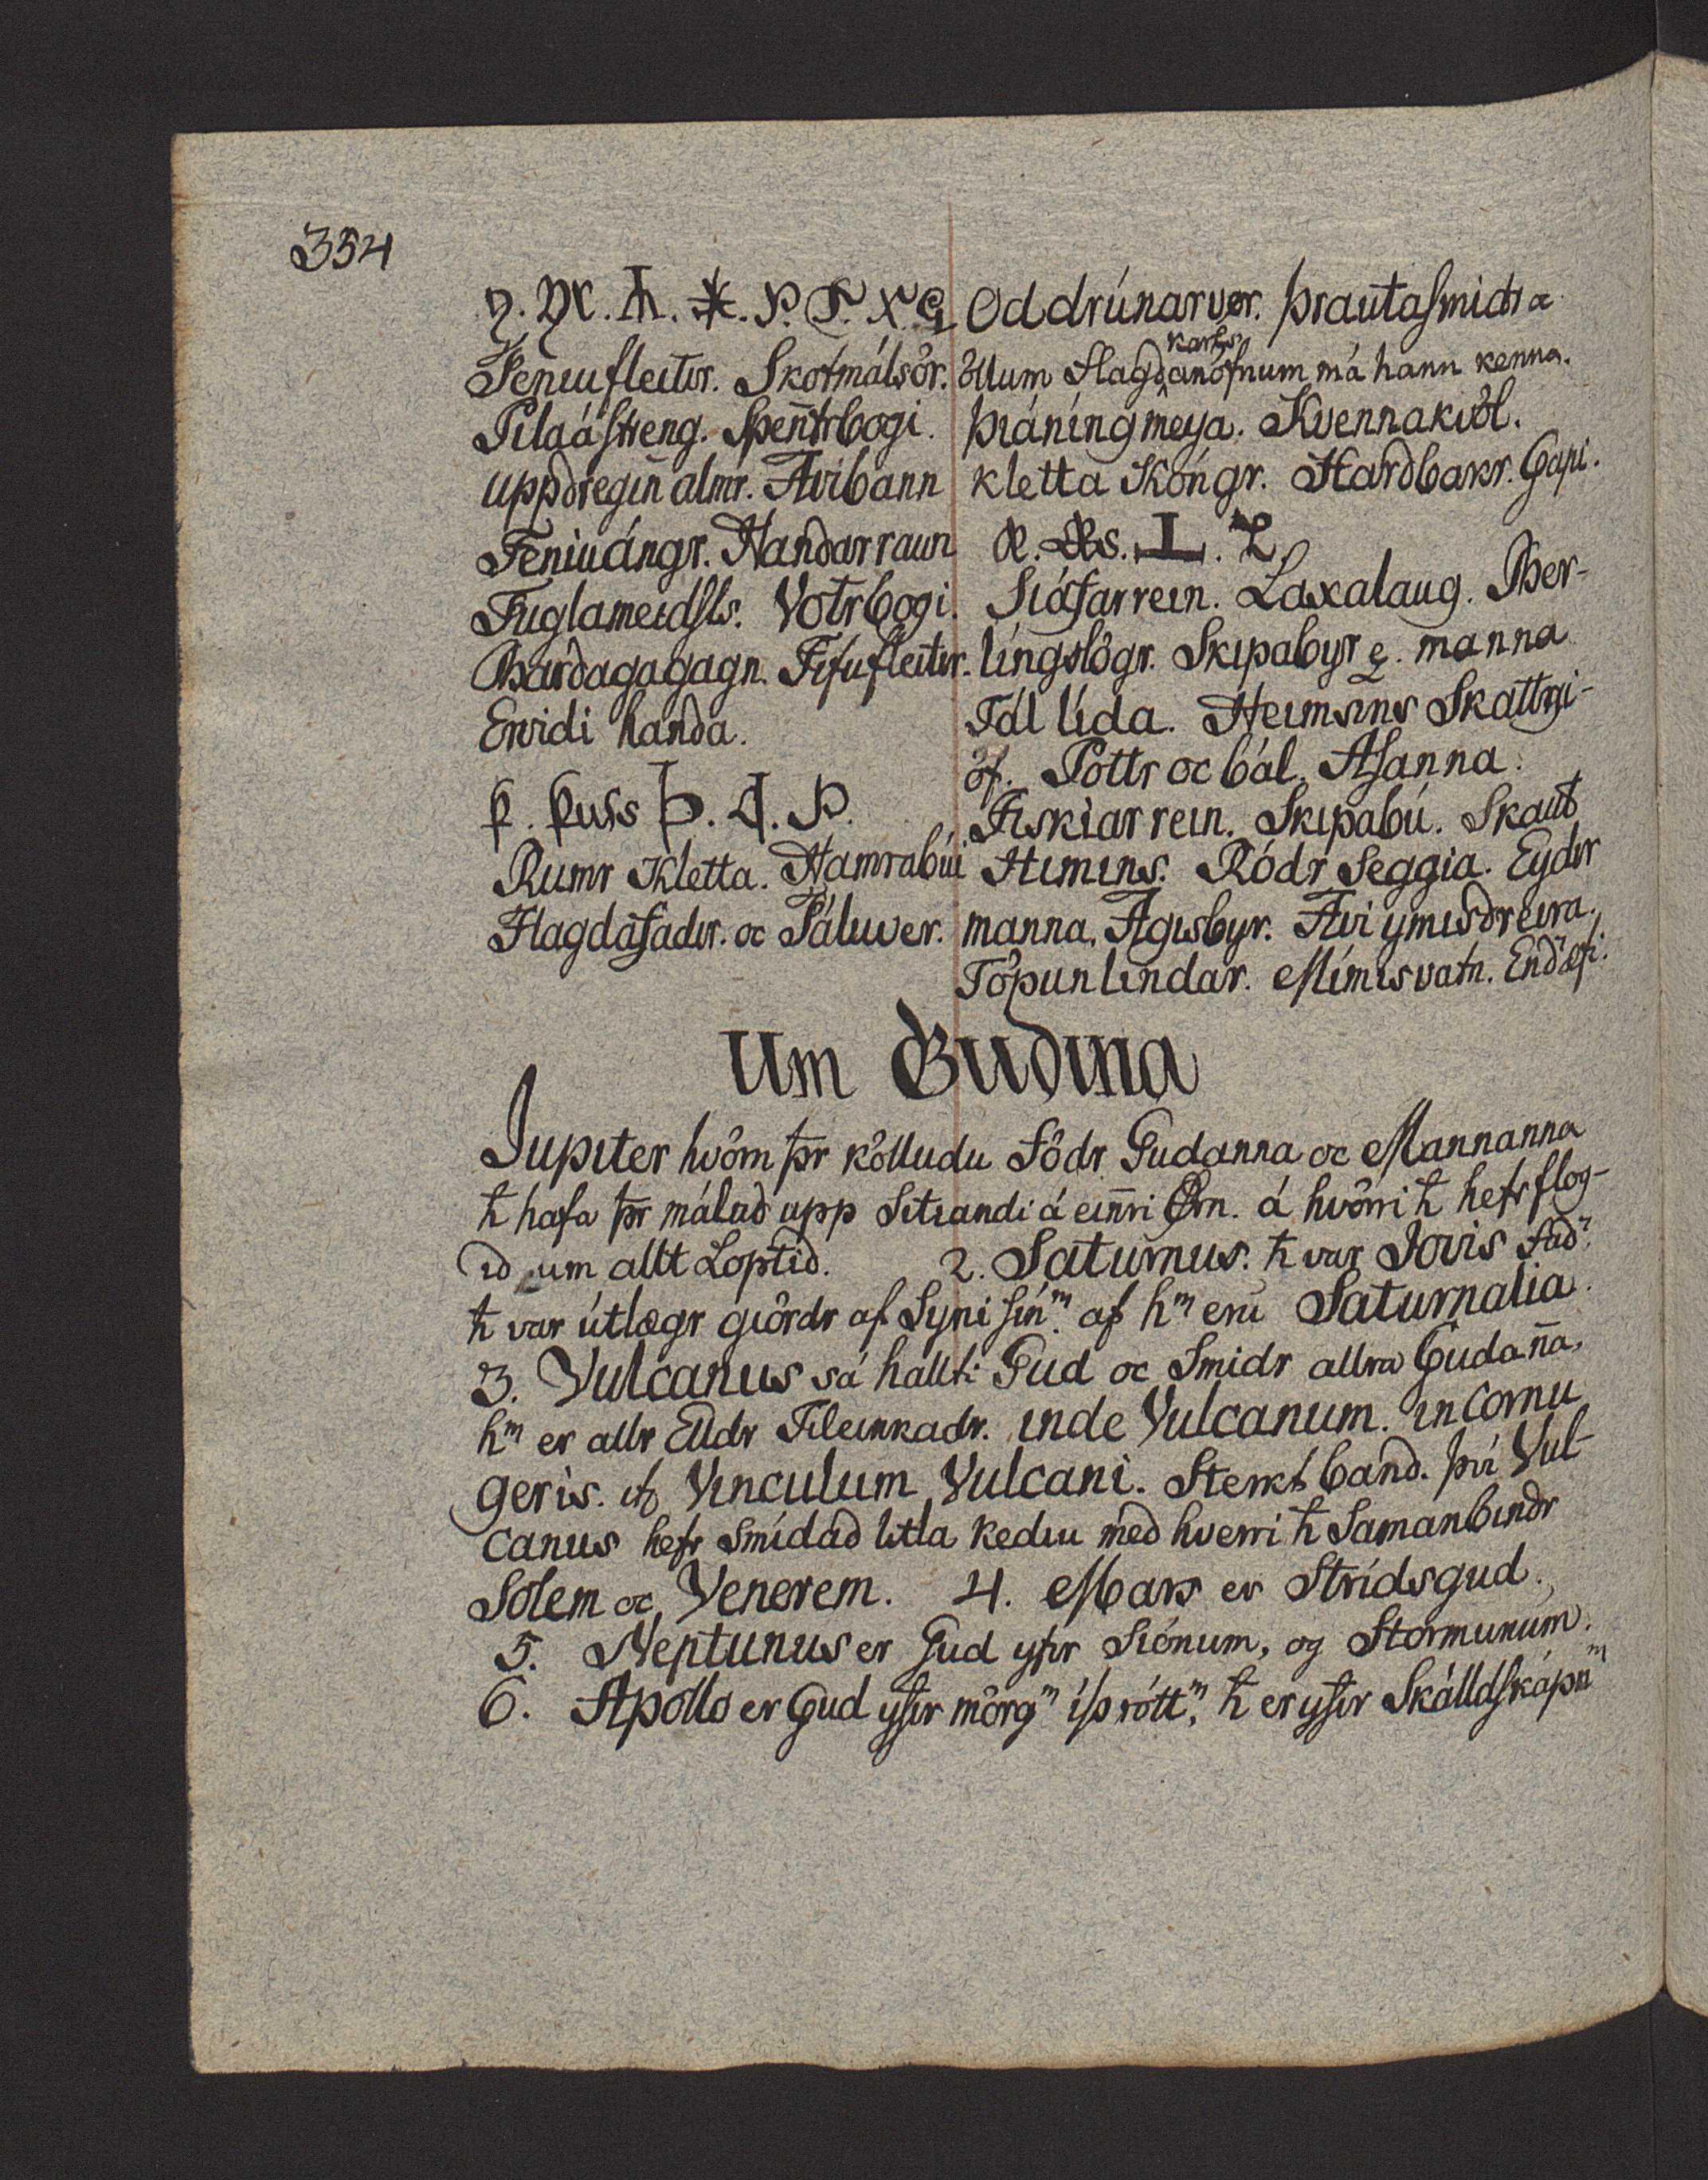 354
Feniufleitir. Skotmálsör.
Pilaástreng. Spen̄trbogi.
uppdregin̄ almr. Fivibann
Feniuángr. Handarraun
Fuglameidsls. Votrbogi.
Bardagagagn. Fífufleitir.
Ervidi handa.
þ. þuss Þ.
Rumr Kletta. Hamrabúi
Flagdafadir. oc Sáluver.
Oddrúnarver. Þrautasmidr
karls
öllum Flagdanöfnum má hann kenna.
Þiáníng meya. Kvennakvöl.
kletta Kóngr. Hardbakr. Gapi.
Œ. L.
Siáfarrein. Laxalaug. Þver-
língslögr. Skipabyr manna
Tál lída. Heimsins Skattgi-
öf. Pottr oc bál. Asanna.
Fiskiarrein. Skipabú. Skaut
Himins. Ródr Seggia. Eydir
manna. Ægisbyr. Ævi ymisdreira.
Töpun lindar. Mímisvatn.
Um Gudina
Iupiter hvörn þr kölludu Födr Gudanna oc Mannanna
ħ hafa þr málad upp Sitiandi á ein̄ri Örn. á hvörri ħ hefr flog-
id um allt Loptid. 2. Saturnus. ħ var Jovis fad.r
ħ var útlægr giördr af Syni sínm. af hm eru Saturnalia.
3. Vulcanus sá hallti Gud oc Smidr allra Gudan̄a.
hm er allr Elldr Tileinkadr. inde Vulcanum. in cornu
geris. Vinculum Vulcani. Sterkt band. því Vul-
canus hefr smídad litla kediu med hverri ħ Samanbindr
Solem oc Venerem. 4. Mars er Strídsgud.
5. Neptunus er Gud yfir Siónum, og Stormunum.
6. Apollo er Gud yfir mörgm íþróttm, ħ er yfir Skálldskapnm